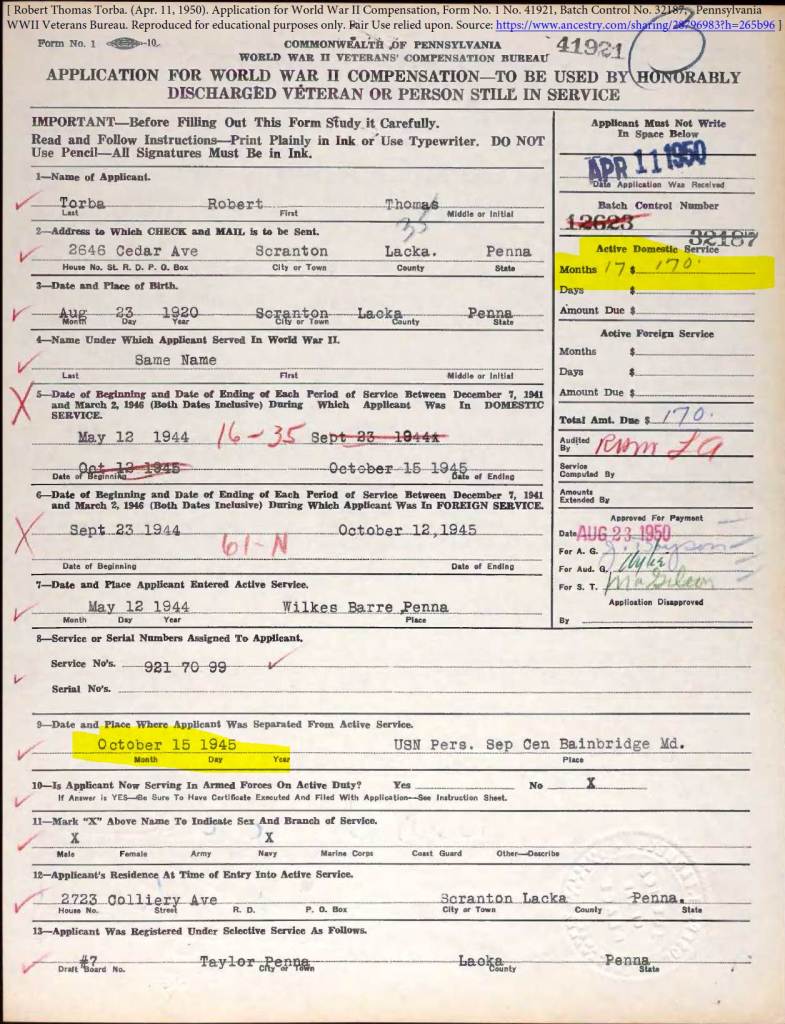 [ Robert Thomas Torba. (Apr. 11, 1950). Application for World War II Compensation, Form No. 1 No. 41921, Batch Control No. 32187, Pennsylvania
WWII Veterans Bureau. Reproduced for educational purposes only. Fair Use relied upon. Source: https://www.ancestry.com/sharing/28796983?h=265b96 ]
Form No. 1 -10.
COMMONWEALTH OF PENNSYLVANIA
WORLD WAR II VETERANS' COMPENSATION BUREAU
41921
3
APPLICATION FOR WORLD WAR II COMPENSATION—TO BE USED BY HONORABLY
DISCHARGED VETERAN OR PERSON STILL IN SERVICE
IMPORTANT—Before Filling Out This Form Study it Carefully.
Read and Follow Instructions—Print Plainly in Ink or Use Typewriter. DO NOT
Use Pencil—All Signatures Must Be in Ink.
1—Name of Applicant.
Torba Robert Thomas
Last First Middle or Initial
35
2—Address to Which CHECK and MAIL is to be Sent.
2646 Cedar Ave Scranton Lacka. Penna
House No. St. R. D. P. O. Box City or Town County State
3—Date and Place of Birth.
Aug 23 1920 Scranton Lacka Penna
Month Day Year City or Town County State
4—Name Under Which Applicant Served In World War II.
Same Name
Last First Middle or Initial
5—Date of Beginning and Date of Ending of Each Period of Service Between December 7, 1941
and March 2, 1946 (Both Dates Inclusive) During Which Applicant Was In DOMESTIC
SERVICE.
May 12 1944 16-35 Sept 23 1944
Oct 12 1945 October 15 1945
Date of Beginning Date of Ending
6—Date of Beginning and Date of Ending of Each Period of Service Between December 7, 1941
and March 2, 1946 (Both Dates Inclusive) During Which Applicant Was In FOREIGN SERVICE.
Sept 23 1944 61-N October 12,1945
Date of Beginning Date of Ending
7—Date and Place Applicant Entered Active Service.
May 12 1944 Wilkes Barre Penna
Month Day Year Place
Applicant Must Not Write
In Space Below
APR 11 1950
Date Application Was Received
Batch Control Number
12623
32187
Active Domestic Service
Months 17 $ 170.
Days $
Amount Due $
Active Foreign Service
Months $
Days $
Amount Due $
Total Amt. Due $ 170.
Audited
By
Service
Computed By
Amounts
Extended By
Approved For Payment
Date AUG 23 1950
For A. G.
For Aud. G.
For S. T.
Application Disapproved
By
8—Service or Serial Numbers Assigned To Applicant.
Service No's. 921 70 99
Serial No's.
9—Date and Place Where Applicant Was Separated From Active Service.
October 15 1945 USN Pers. Sep Cen Bainbridge Md.
Month Day Year Place
10—Is Applicant Now Serving In Armed Forces On Active Duty? Yes No X
If Answer is YES—Be Sure To Have Certificate Executed And Filed With Application—See Instruction Sheet.
11—Mark "X" Above Name To Indicate Sex And Branch of Service.
X X
Male Female Army Navy Marine Corps Coast Guard Other—Describe
12—Applicant's Residence At Time of Entry Into Active Service.
2723 Colliery Ave Scranton Lacka Penna.
House No. Street R. D. P. O. Box City or Town County State
13—Applicant Was Registered Under Selective Service As Follows.
#7 Taylor Penna Lacka Penna
Draft Board No. City or Town County State